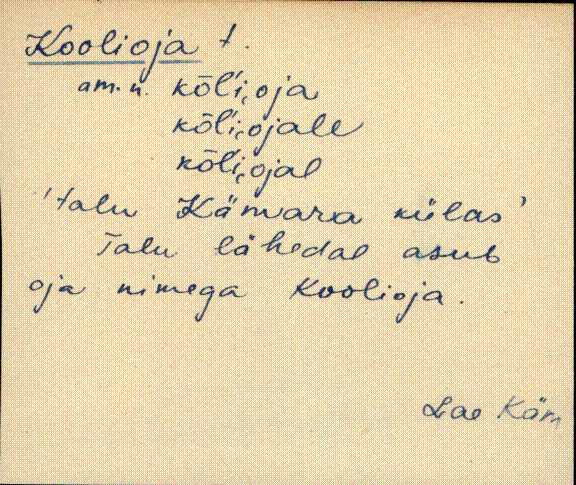 Koolioja t.
am. n. kōĺi,oja
kōĺi,ojale
kōĺi,ojal
'talu Kämara külas'
Talu lähedal asub
oja nimega Koolioja.
Lae Käm